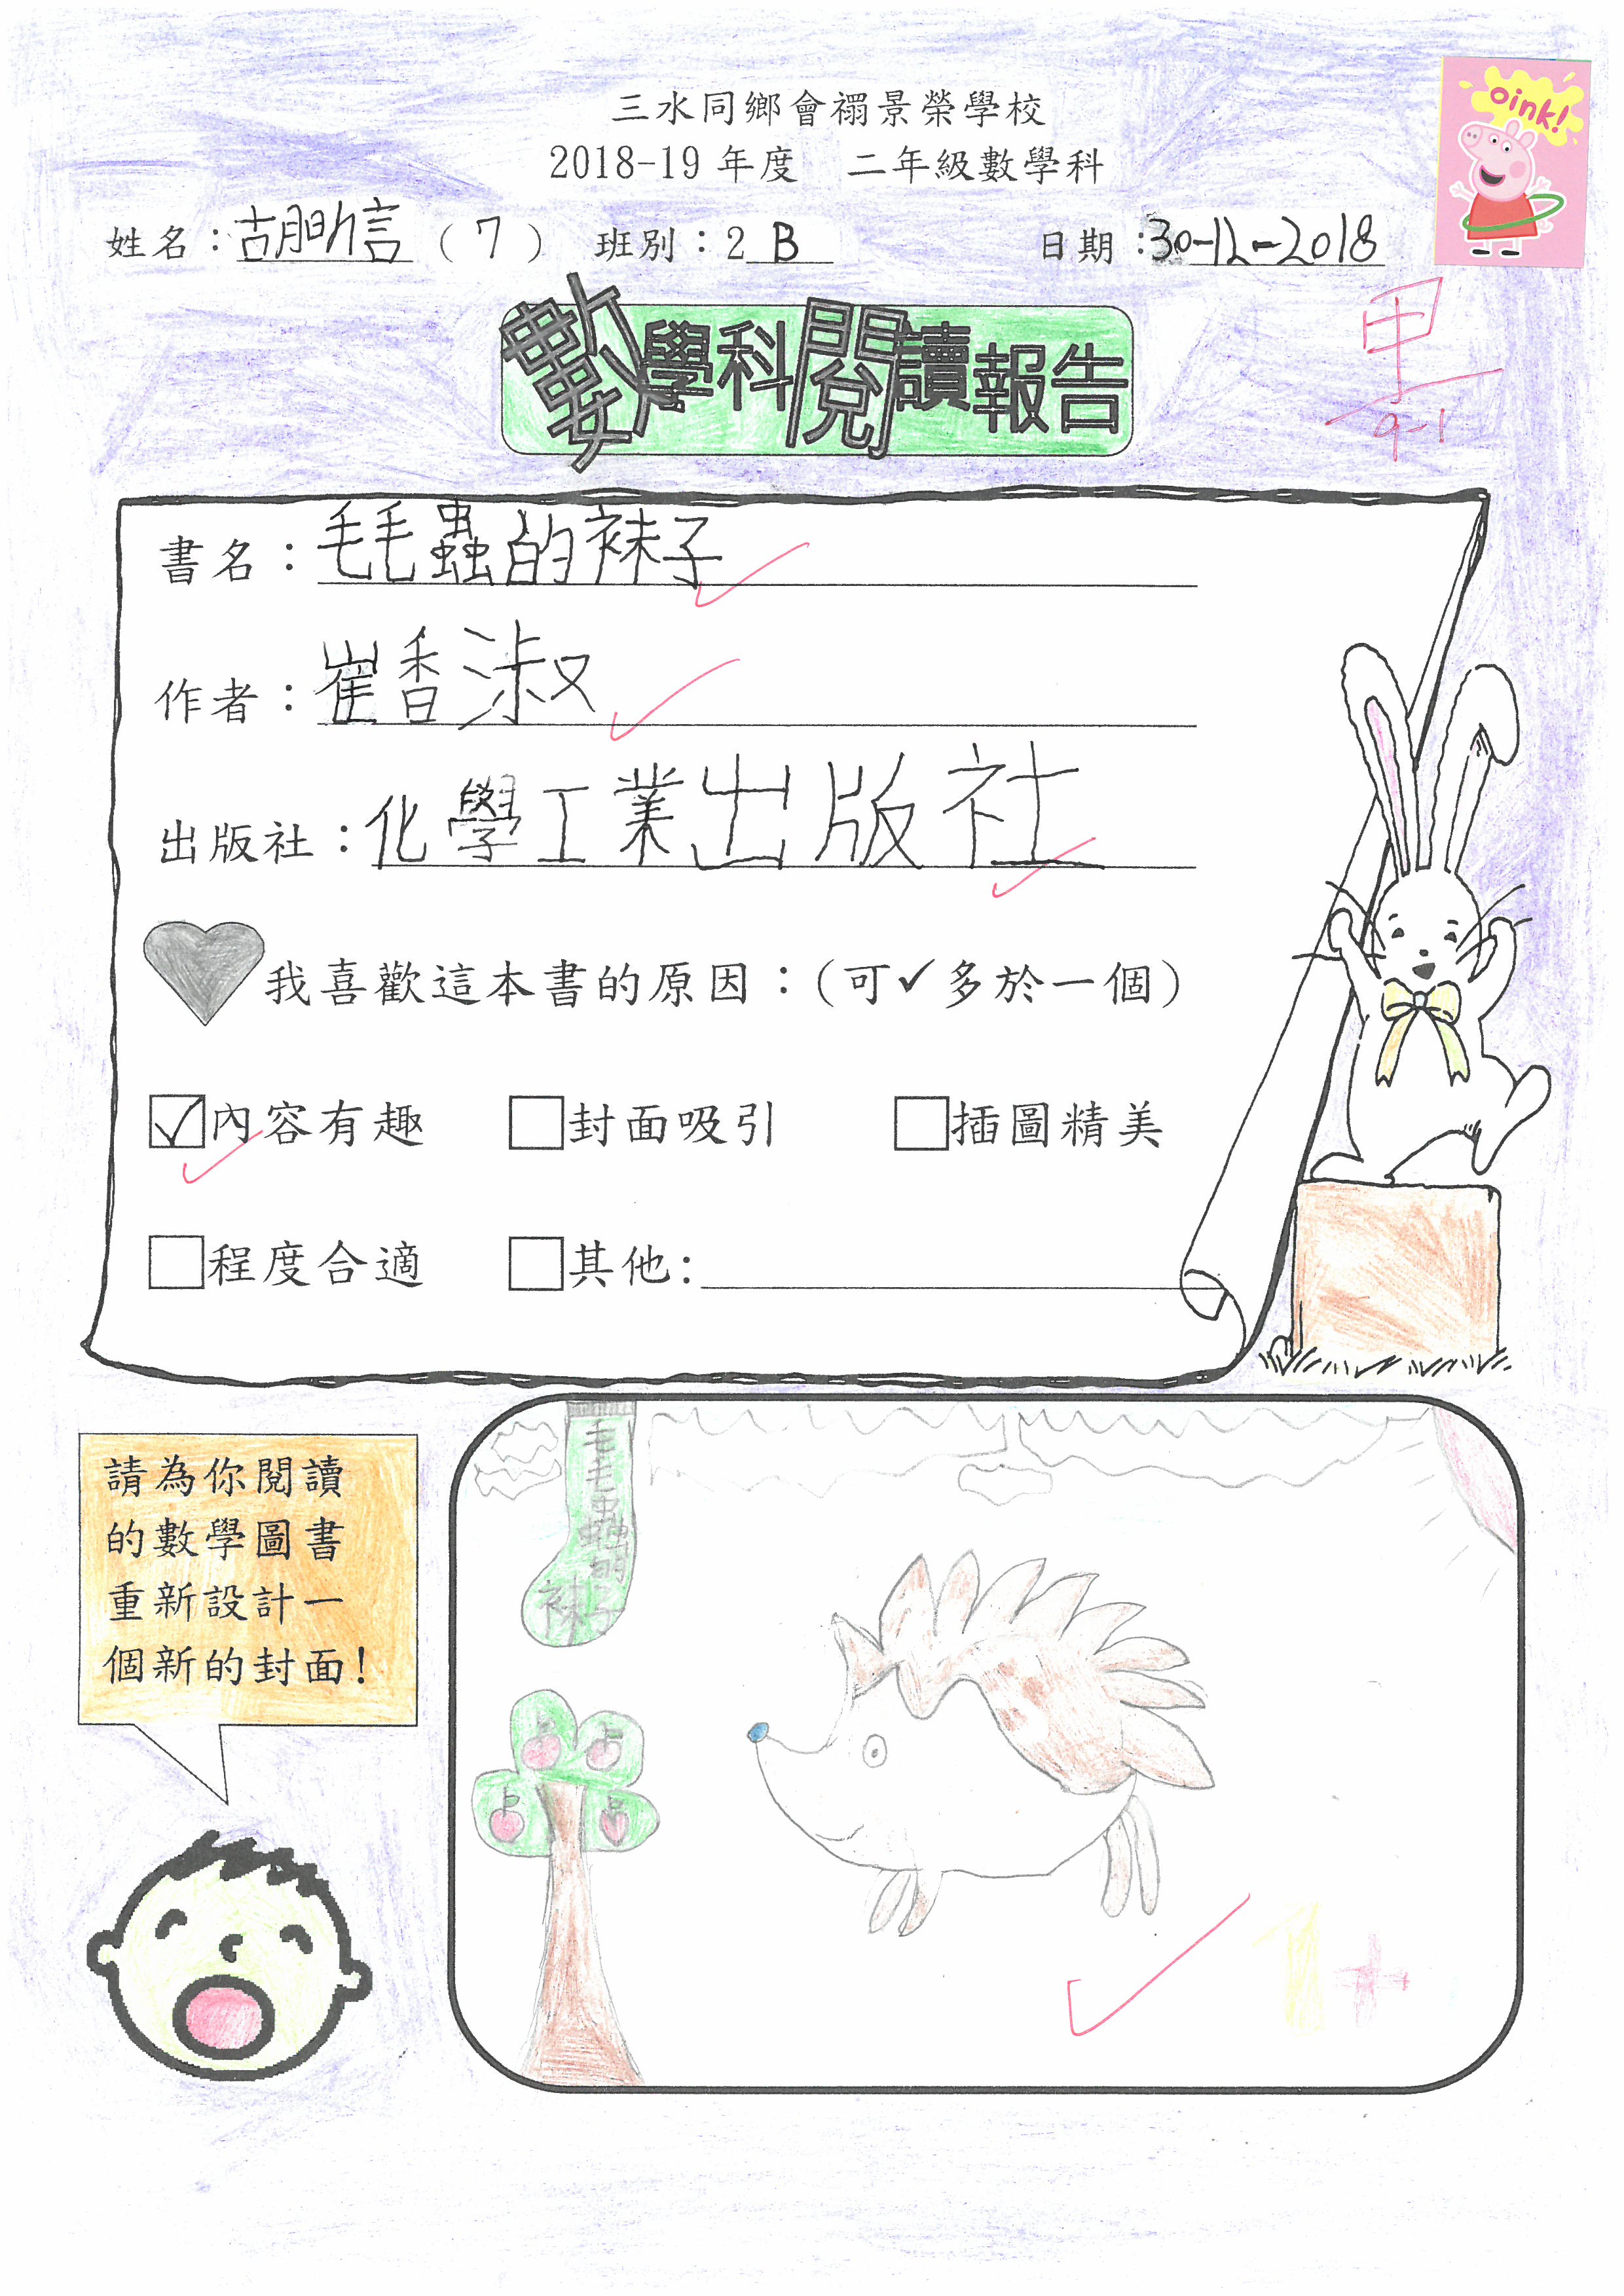 三水同鄉會禤景榮學校
2018-19 年度 二年級數學科
oink!
姓名：胡 （7） 班別：2 B 日期：30-12-2018
數學科閱讀報告
甲
9-1
書名：毛毛蟲的袜子
作者：崔香淑
出版社：化學工業出版社
我喜歡這本書的原因：(可✓多於一個)
☑內容有趣 □封面吸引 □插圖精美
□程度合適 □其他：
請為你閱讀
的數學圖書
重新設計一
個新的封面！
毛毛蟲的袜子
1+